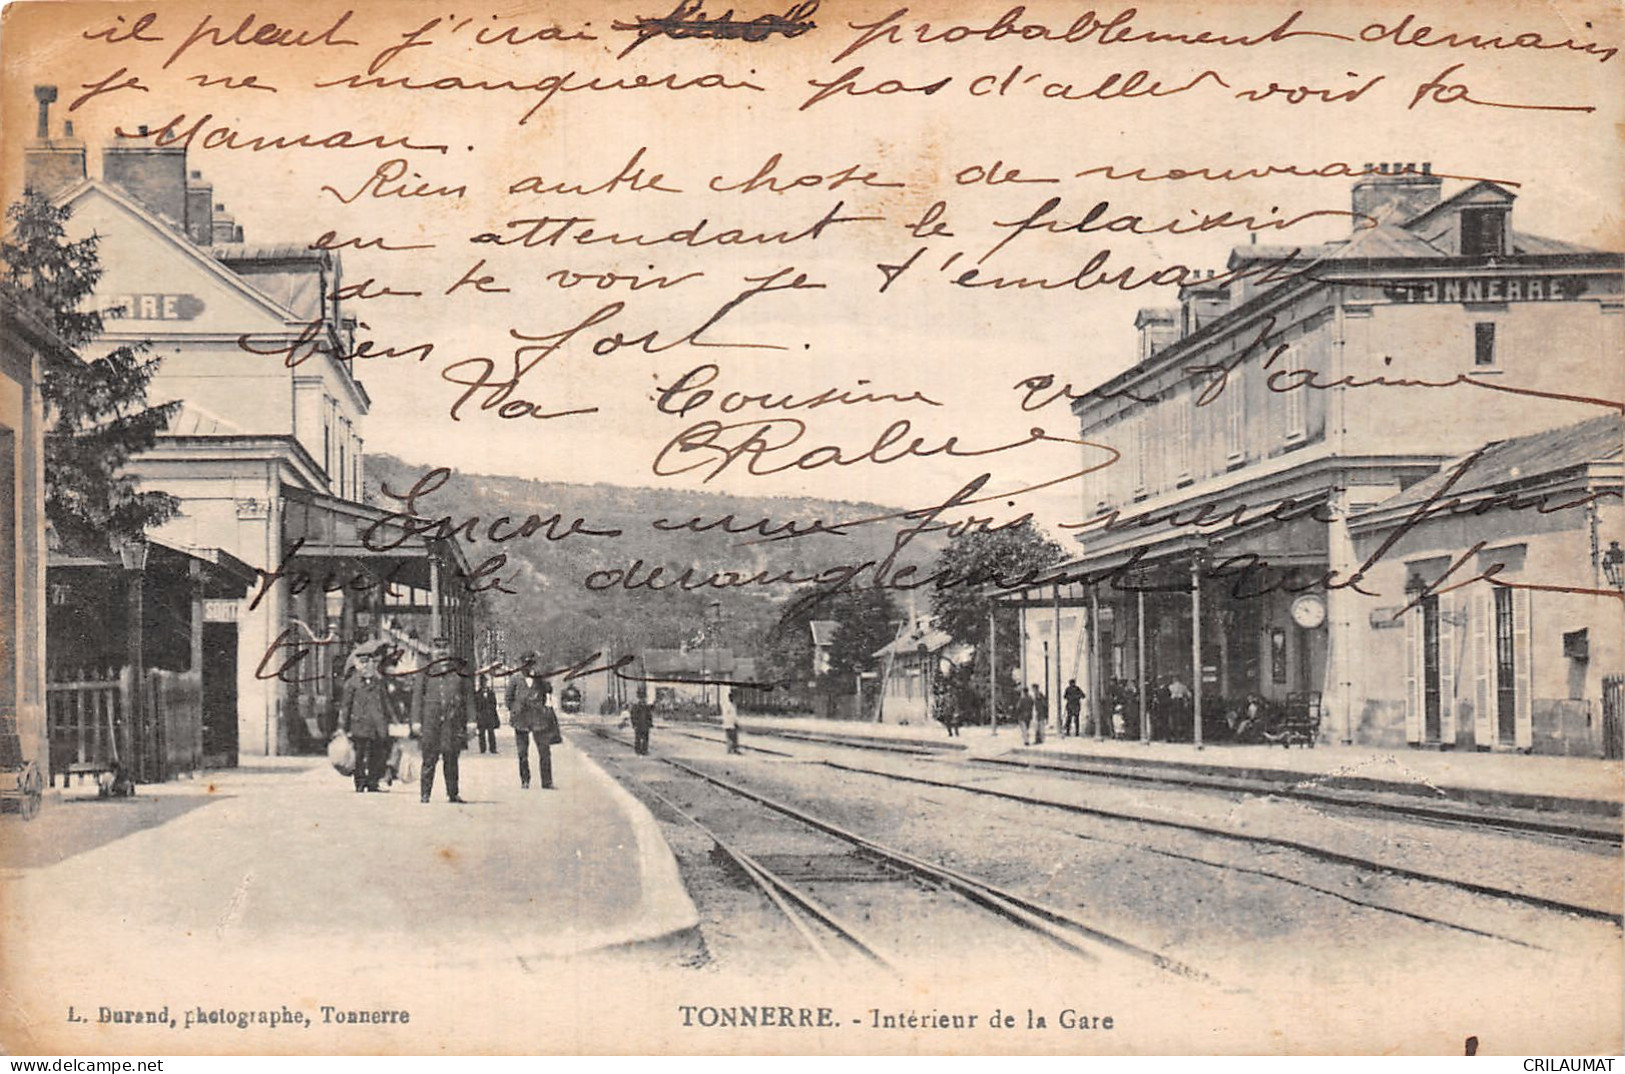 il pleut j'irai probablement demain
je ne manquerai pas d'aller voir ta
Maman.
Rien autre chose de nouveau
en attendant le plaisir
de te voir je t'embrasse
bien fort.
Ta Cousine qui t'aime
Encore une fois merci pour
tout le derangement que je
te cause
TONNERRE
SORT
L. Durand, photographe, Tonnerre
TONNERRE. - Intérieur de la Gare
CRILAUMAT